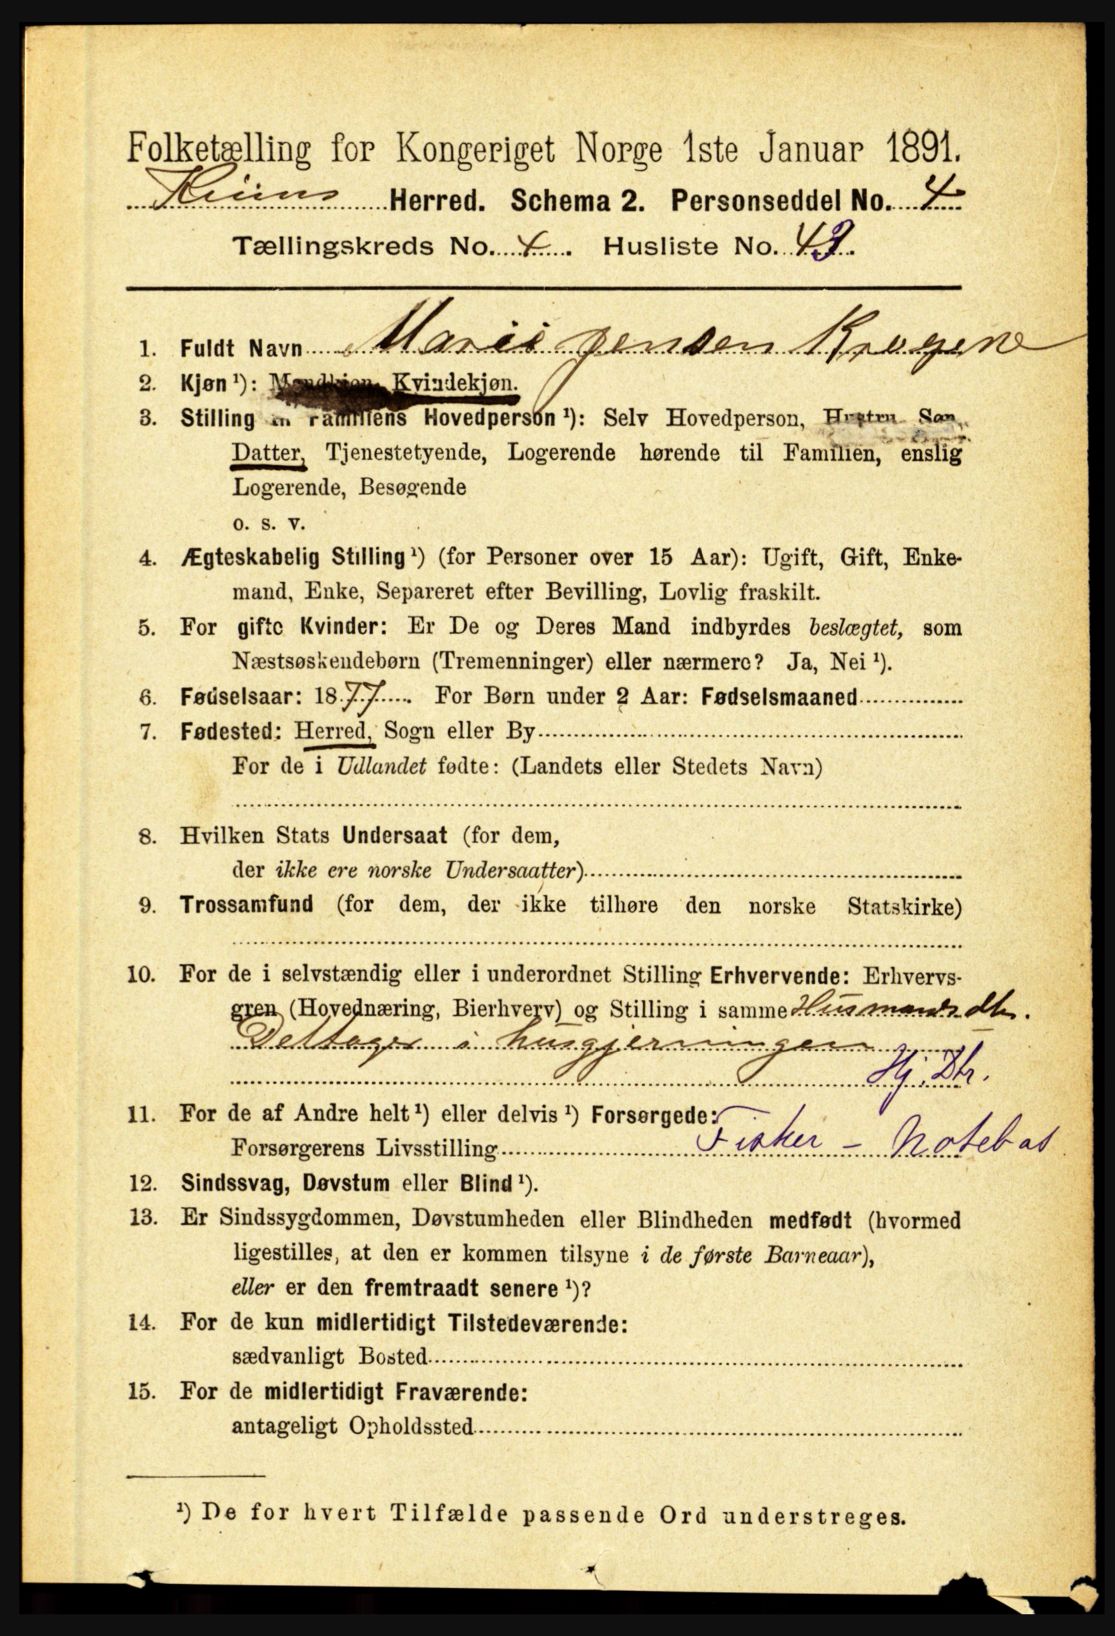 Folketælling for Kongeriget Norge 1ste Januar 1891.
Kinns Herred. Schema 2. Personseddel No. 4
Tællingskreds No. 4. Husliste No. 43.
1. Fuldt Navn Marie Jensen
2. Kjøn ¹): Mandkjøn, Kvindekjøn.
3. Stilling i Familiens Hovedperson ¹): Selv Hovedperson, Hustru, Søn,
Datter, Tjenestetyende, Logerende hørende til Familien, enslig
Logerende, Besøgende
o. s. v.
4. Ægteskabelig Stilling ¹) (for Personer over 15 Aar): Ugift, Gift, Enke-
mand, Enke, Separeret efter Bevilling, Lovlig fraskilt.
5. For gifte Kvinder: Er De og Deres Mand indbyrdes beslægtet, som
Næstsøskendebørn (Tremenninger) eller nærmere? Ja, Nei ¹).
6. Fødselsaar: 1877. For Børn under 2 Aar: Fødselsmaaned
7. Fødested: Herred, Sogn eller By
For de i Udlandet fødte: (Landets eller Stedets Navn)
8. Hvilken Stats Undersaat (for dem,
der ikke ere norske Undersaatter)
9. Trossamfund (for dem, der ikke tilhøre den norske Statskirke)
10. For de i selvstændig eller i underordnet Stilling Erhvervende: Erhvervs-
gren (Hovednæring, Bierhverv) og Stilling i samme Husmands dtr.
Deltager i husgjerningen
Hj. Dtr.
11. For de af Andre helt ¹) eller delvis ¹) Forsørgede:
Forsørgerens Livsstilling Fisker – Notebas
12. Sindssvag, Døvstum eller Blind ¹).
13. Er Sindssygdommen, Døvstumheden eller Blindheden medfødt (hvormed
ligestilles, at den er kommen tilsyne i de første Barneaar),
eller er den fremtraadt senere ¹)?
14. For de kun midlertidigt Tilstedeværende:
sædvanligt Bosted
15. For de midlertidigt Fraværende:
antageligt Opholdssted
¹) De for hvert Tilfælde passende Ord understreges.